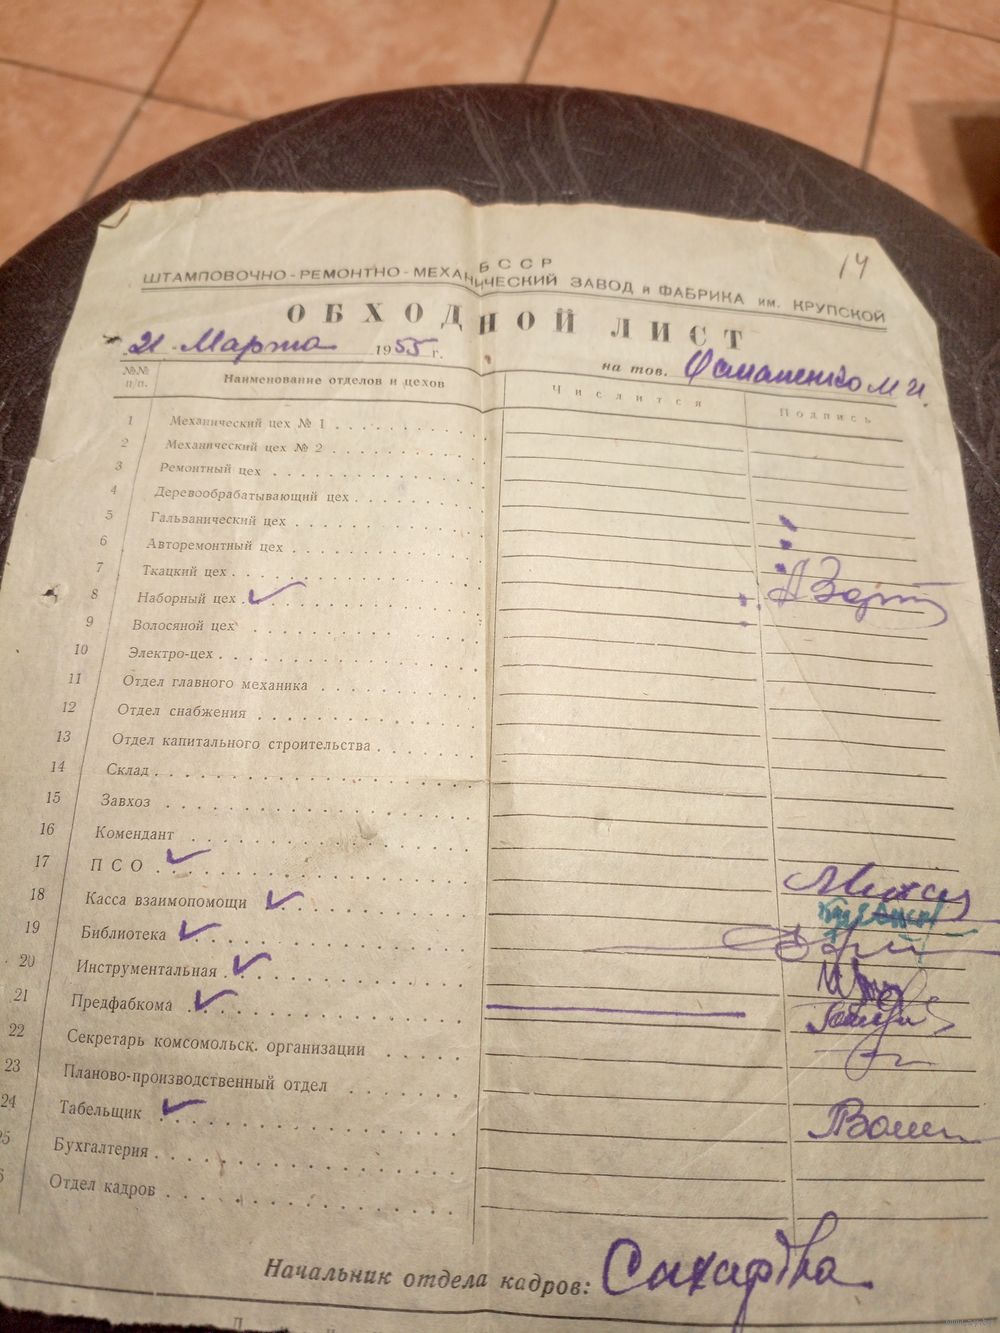 14
БССР
ШТАМПОВОЧНО-РЕМОНТНО-МЕХАНИЧЕСКИЙ ЗАВОД и ФАБРИКА им. КРУПСКОЙ
ОБХОДНОЙ ЛИСТ
21 Марта 1955 г. на тов. М И.
№№ п/п. Наименование отделов и цехов Числится Подпись
1 Механический цех № 1
2 Механический цех № 2
3 Ремонтный цех
4 Деревообрабатывающий цех
5 Гальванический цех
6 Авторемонтный цех
7 Ткацкий цех
8 Наборный цех
9 Волосяной цех
10 Электро-цех
11 Отдел главного механика
12 Отдел снабжения
13 Отдел капитального строительства
14 Склад
15 Завхоз
16 Комендант
17 ПСО
18 Касса взаимопомощи
19 Библиотека
20 Инструментальная
21 Предфабкома
22 Секретарь комсомольск. организации
23 Планово-производственный отдел
24 Табельщик
25 Бухгалтерия
6 Отдел кадров
Начальник отдела кадров: